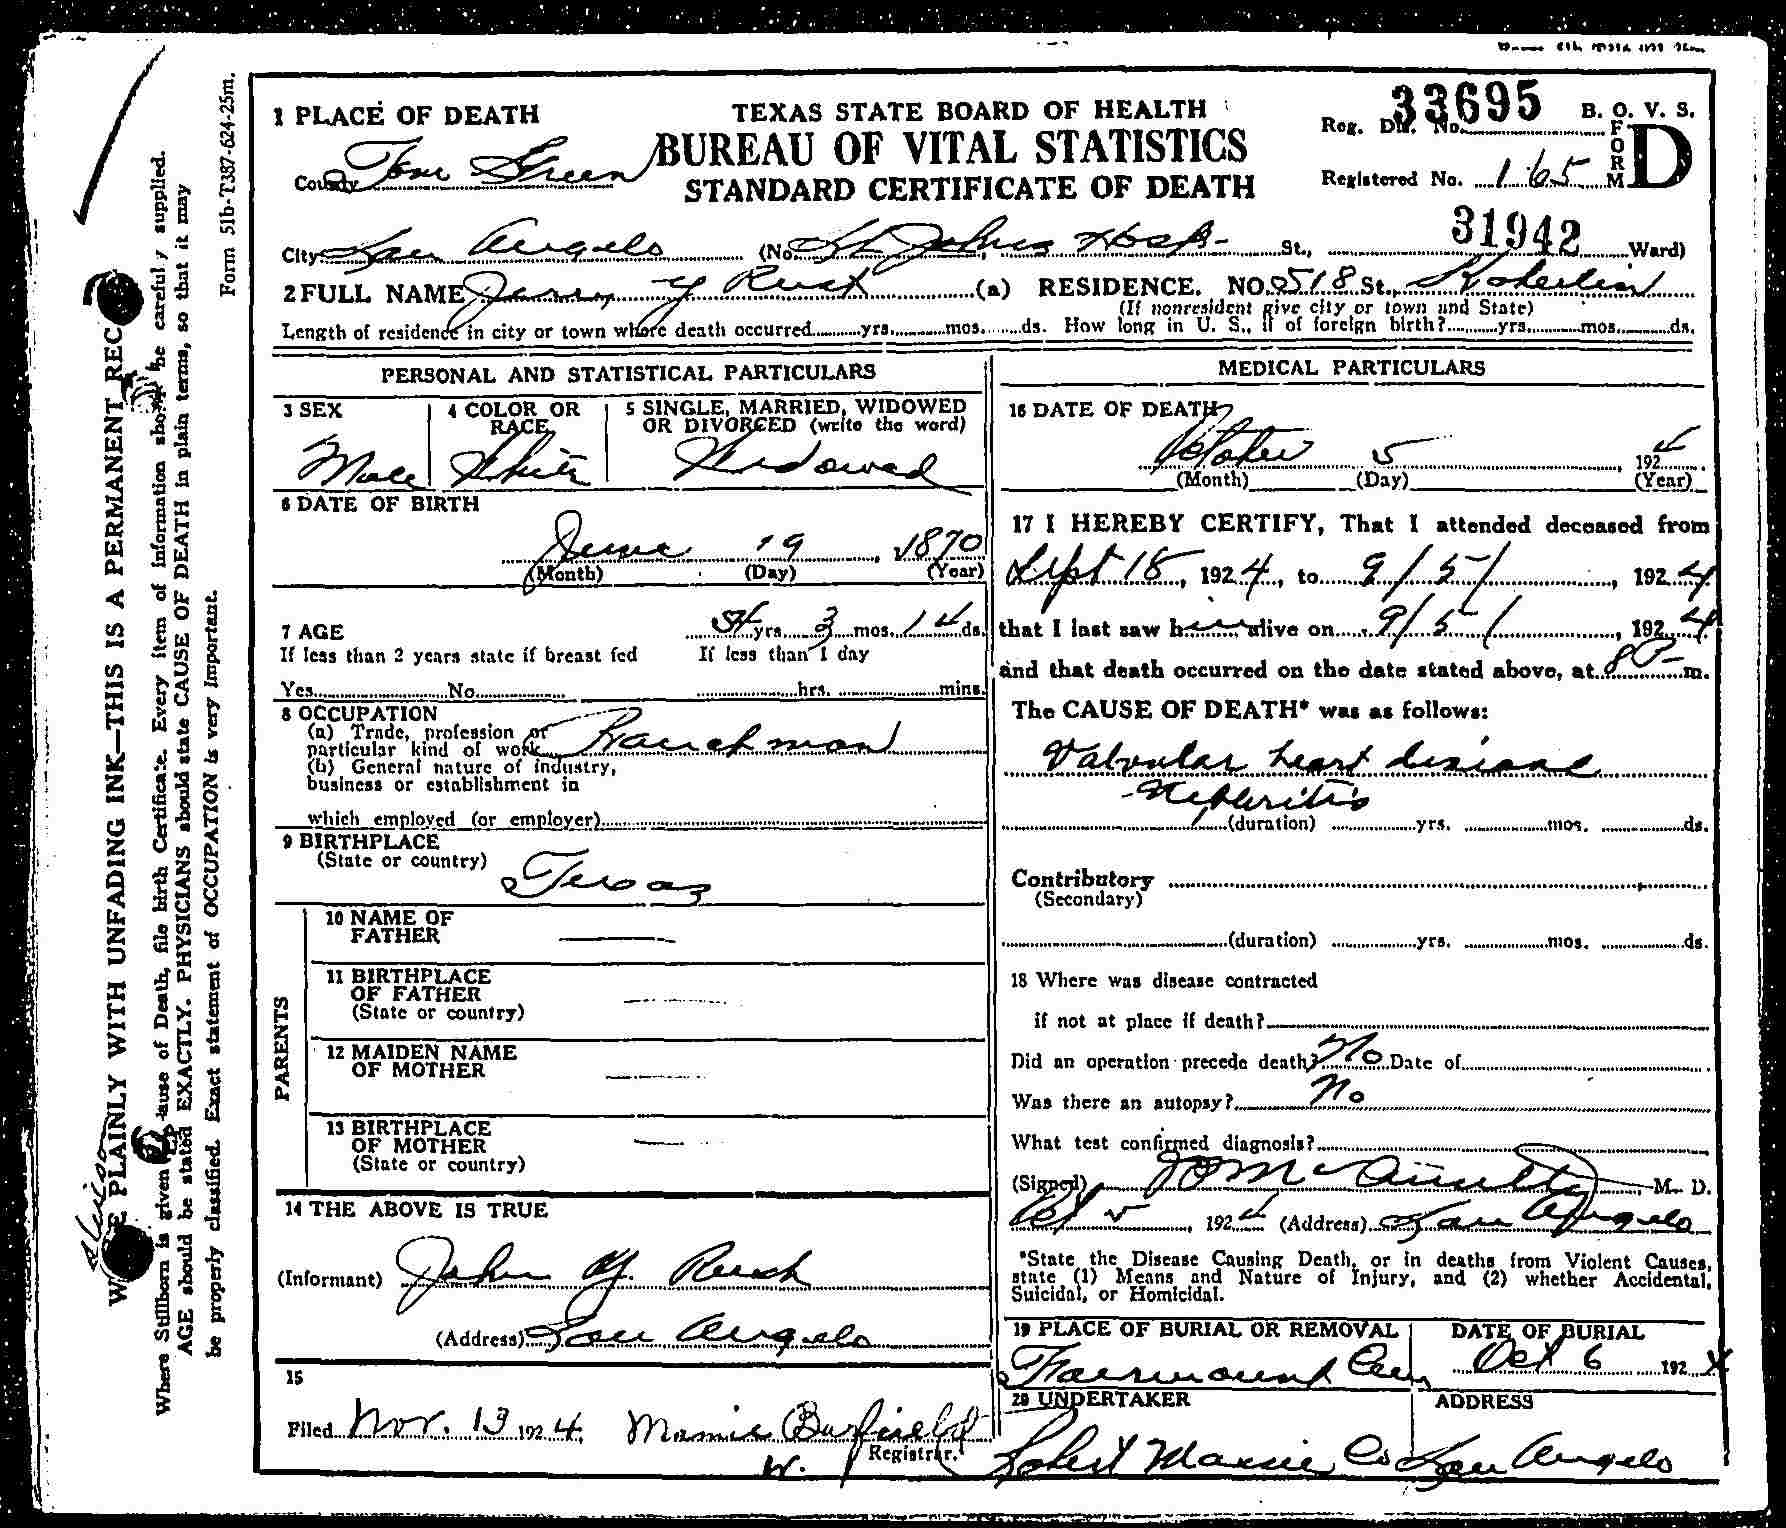 1 PLACE OF DEATH
TEXAS STATE BOARD OF HEALTH
BUREAU OF VITAL STATISTICS
STANDARD CERTIFICATE OF DEATH
Reg. Dis. No. 33695 B. O. V. S.
FORM D
Registered No. 165
County Tom Green
31942
City San Angelo (No. St Johns Hosp- St., Ward)
2 FULL NAME Jerry Y Rust (a) RESIDENCE. NO. 518 St., Koberlin
(If nonresident give city or town and State)
Length of residence in city or town where death occurred yrs. mos. ds. How long in U. S., if of foreign birth? yrs. mos. ds.
PERSONAL AND STATISTICAL PARTICULARS
3 SEX
Male
4 COLOR OR RACE
White
5 SINGLE, MARRIED, WIDOWED
OR DIVORCED (write the word)
Widowed
6 DATE OF BIRTH
June 19, 1870
(Month) (Day) (Year)
7 AGE 54 yrs. 3 mos. 14 ds.
If less than 2 years state if breast fed If less than 1 day
Yes No hrs. mins.
8 OCCUPATION
(a) Trade, profession or
particular kind of work Ranchman
(b) General nature of industry,
business or establishment in
which employed (or employer)
9 BIRTHPLACE
(State or country) Texas
PARENTS
10 NAME OF
FATHER
11 BIRTHPLACE
OF FATHER
(State or country)
12 MAIDEN NAME
OF MOTHER
13 BIRTHPLACE
OF MOTHER
(State or country)
14 THE ABOVE IS TRUE
(Informant) John Y. Rust
(Address) San Angelo
15
Filed Nov. 13 1924. Mamie Burfield
Registrar.
W.
MEDICAL PARTICULARS
16 DATE OF DEATH
October 5 1924
(Month) (Day) (Year)
17 I HEREBY CERTIFY, That I attended deceased from
Sept 18, 1924, to 9/5/, 1924
that I last saw him alive on 9/5/, 1924
and that death occurred on the date stated above, at 8 P- m.
The CAUSE OF DEATH* was as follows:
Valvular heart disease
Nephritis
(duration) yrs. mos. ds.
Contributory
(Secondary)
(duration) yrs. mos. ds.
18 Where was disease contracted
if not at place if death?
Did an operation precede death? No Date of
Was there an autopsy? No
What test confirmed diagnosis?
(Signed) M. D.
Oct 5, 1924 (Address) San Angelo
*State the Disease Causing Death, or in deaths from Violent Causes,
state (1) Means and Nature of Injury, and (2) whether Accidental,
Suicidal, or Homicidal.
19 PLACE OF BURIAL OR REMOVAL
Fairmount Cem
DATE OF BURIAL
Oct 6 1924
20 UNDERTAKER
Robert Massie Co
ADDRESS
San Angelo
PLAINLY WITH UNFADING INK—THIS IS A PERMANENT REC
Where Stillborn is given cause of Death, file birth Certificate. Every item of information should be carefully supplied.
AGE should be stated EXACTLY. PHYSICIANS should state CAUSE OF DEATH in plain terms, so that it may
be properly classified. Exact statement of OCCUPATION is very Important.
Form 51b-T387-624-25m.